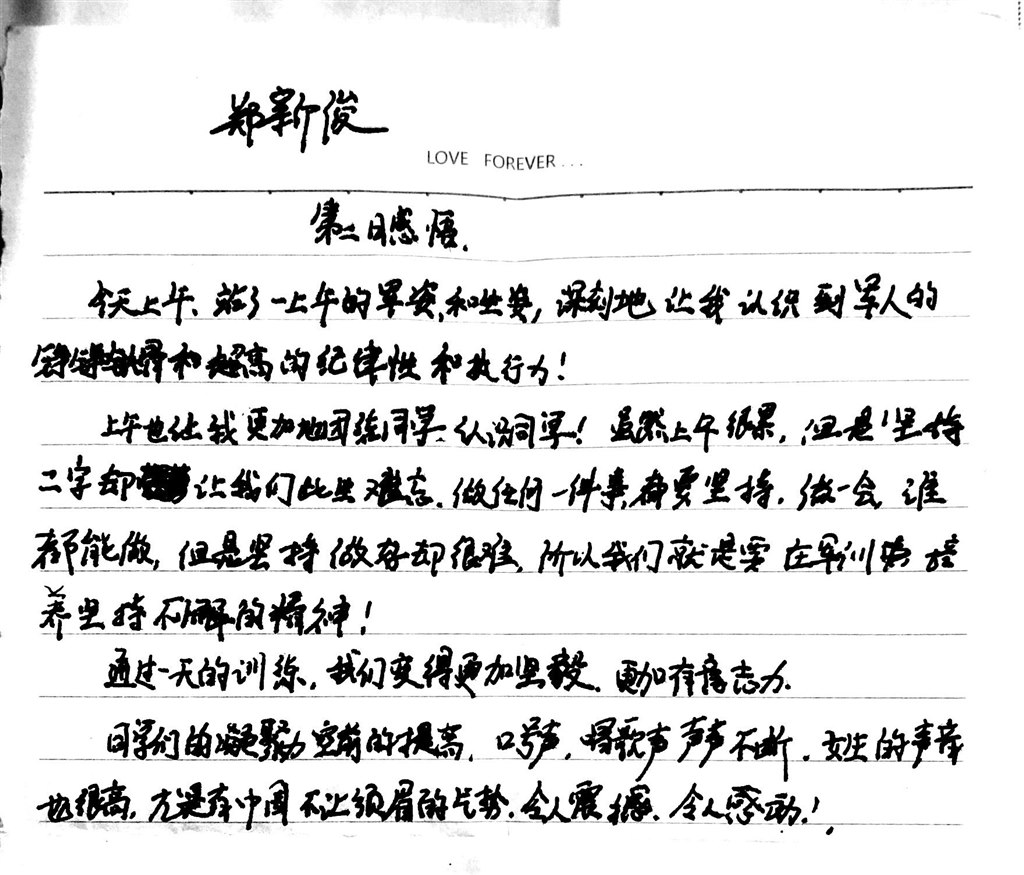 郑新俊
LOVE FOREVER...
第二日感悟.
今天上午、站了一上午的军姿,和坐姿,深刻地让我认识到军人的
和超高的纪律性和执行力!
上午也让我更加地团结同学、认识同学!虽然上午很累,但是坚持
二字却让我们此生难忘.做任何一件事,都要坚持.做一会,谁
都能做,但是坚持做好却很难,所以我们就是要在军训中培
养坚持不懈的精神!
通过一天的训练,我们变得更加坚毅.更加有意志力.
同学们的凝聚力空前的提高,口号声,唱歌声声声不断.女生的声音
也很高,尤是有巾帼不让须眉的气势.令人震撼.令人感动!